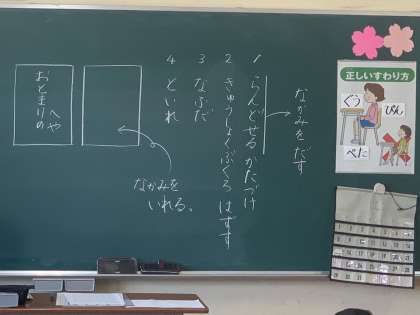 なかみをだす
1 らんどせるかたづけ
2 きゅうしょくぶくろ はずす
3 なふだ
4 といれ
なかみを
いれる。
おとまりの
へや
正しいすわり方
ぐう
ぴん
ぺた